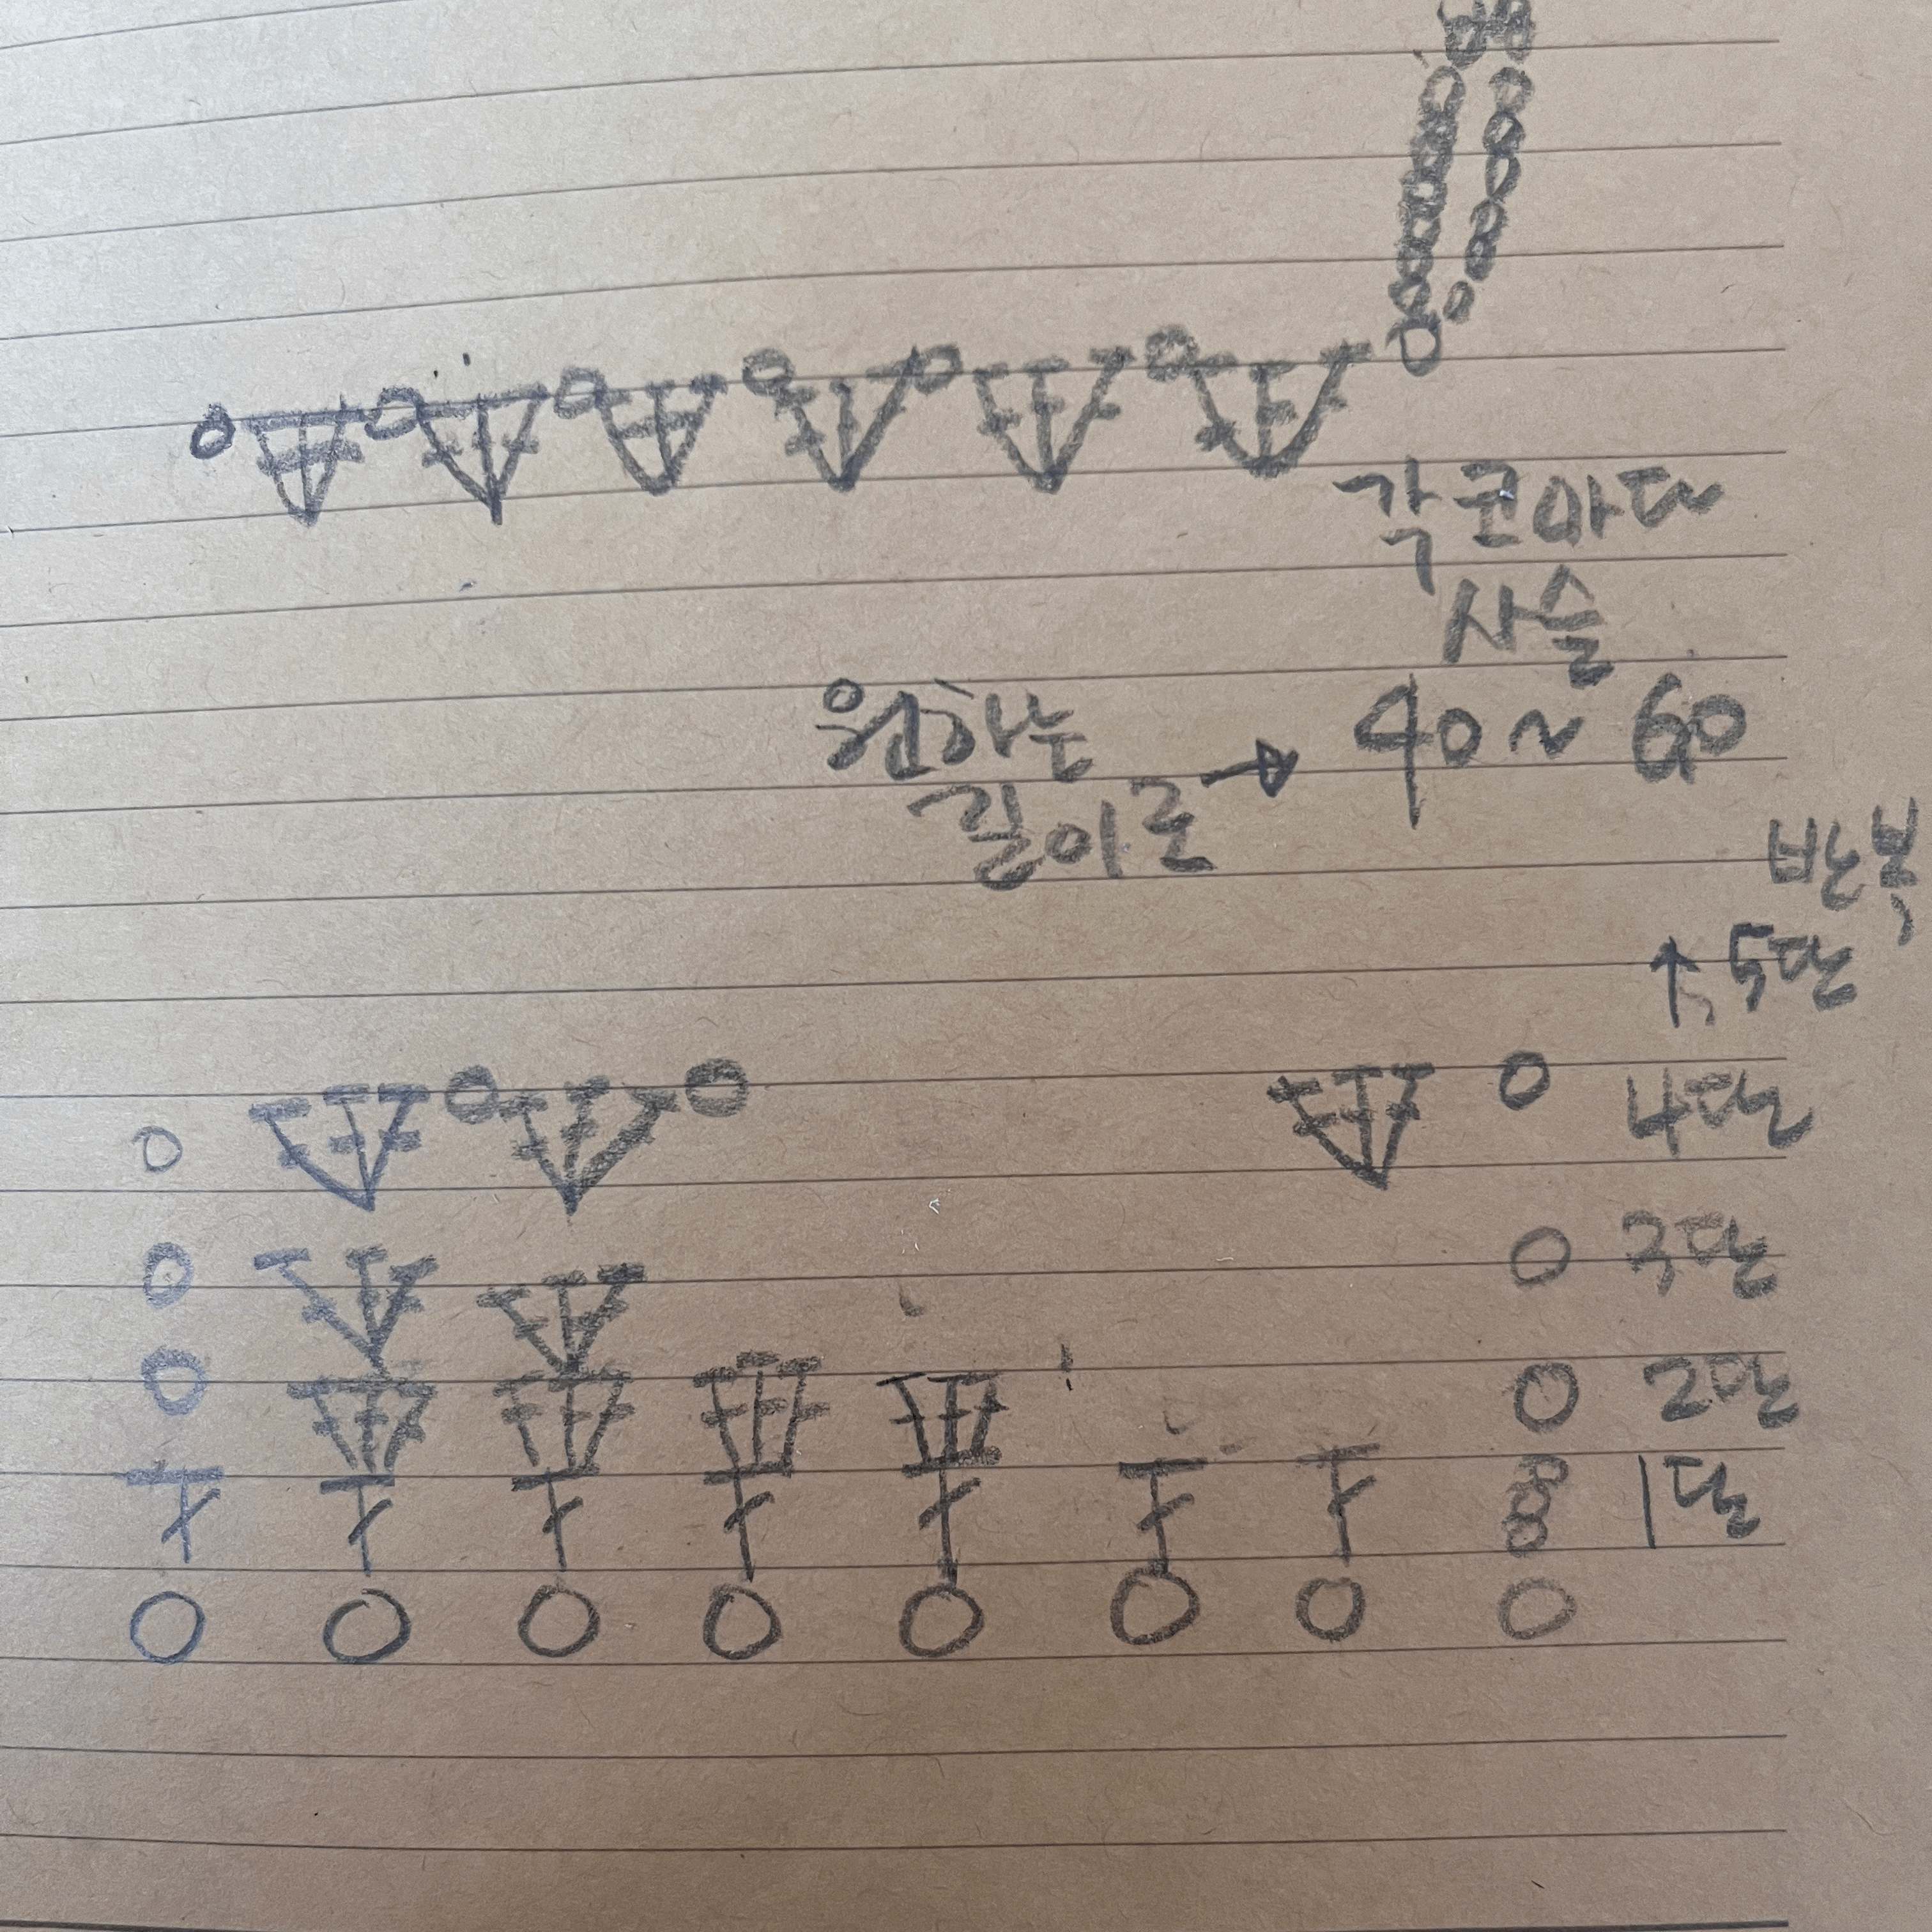 각 코마다
사슬
원하는
길이로 → 40 ~ 60
반복
↑ 5단
4단
3단
2단
1단